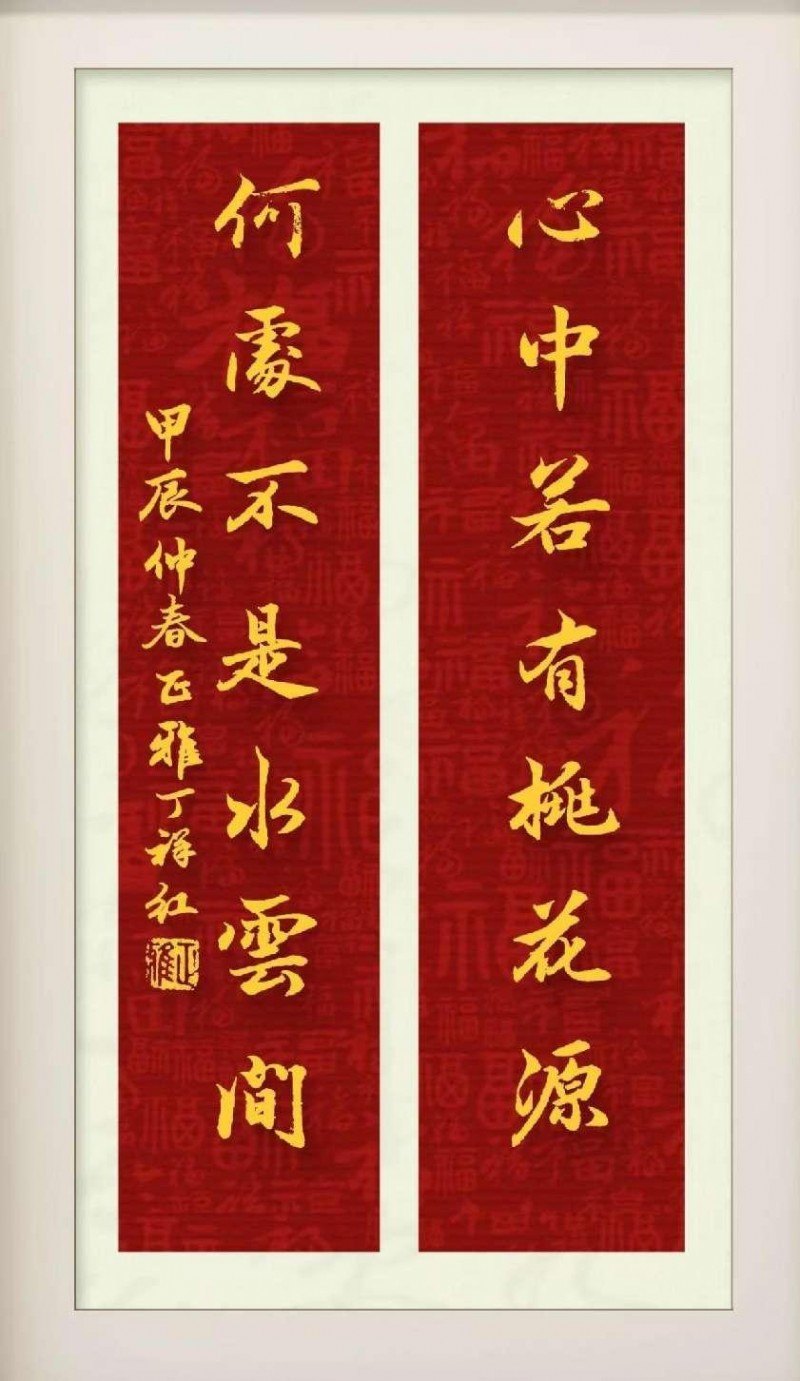 心中若有桃花源
何處不是水雲間
甲辰仲春正雅丁祥紅
正雅